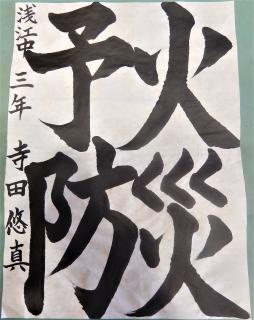 火災
予防
浅江中 三年 寺田悠真